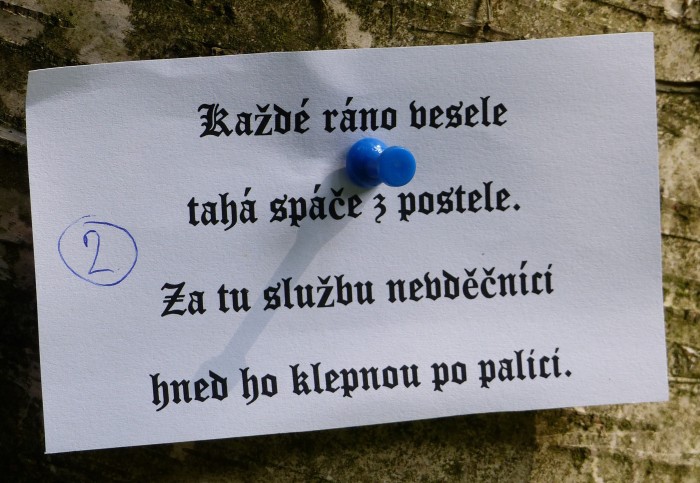 Každé ráno vesele
tahá spáče z postele.
2
Za tu službu nevděčníci
hned ho klepnou po palici.